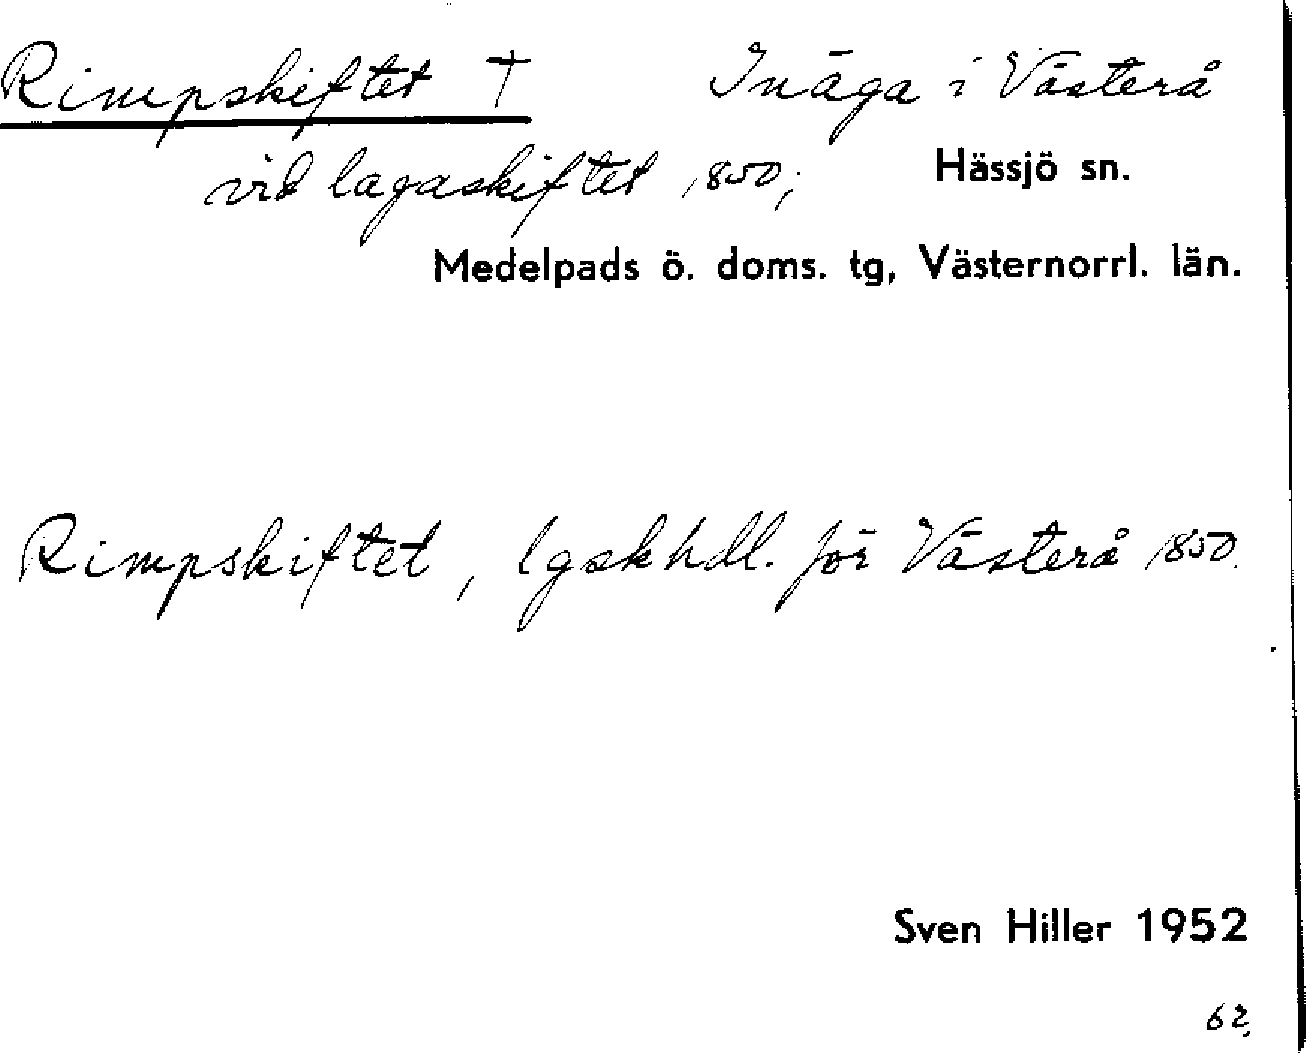 Rimpskiftet † Inäga i Västerå
vid lagaskiftet 1850; Hässjö sn.
Medelpads ö. doms. tg, Västernorrl. län.
Rimpskiftet, lgskhdl. för Västerå 1850.
Sven Hiller 1952
62,